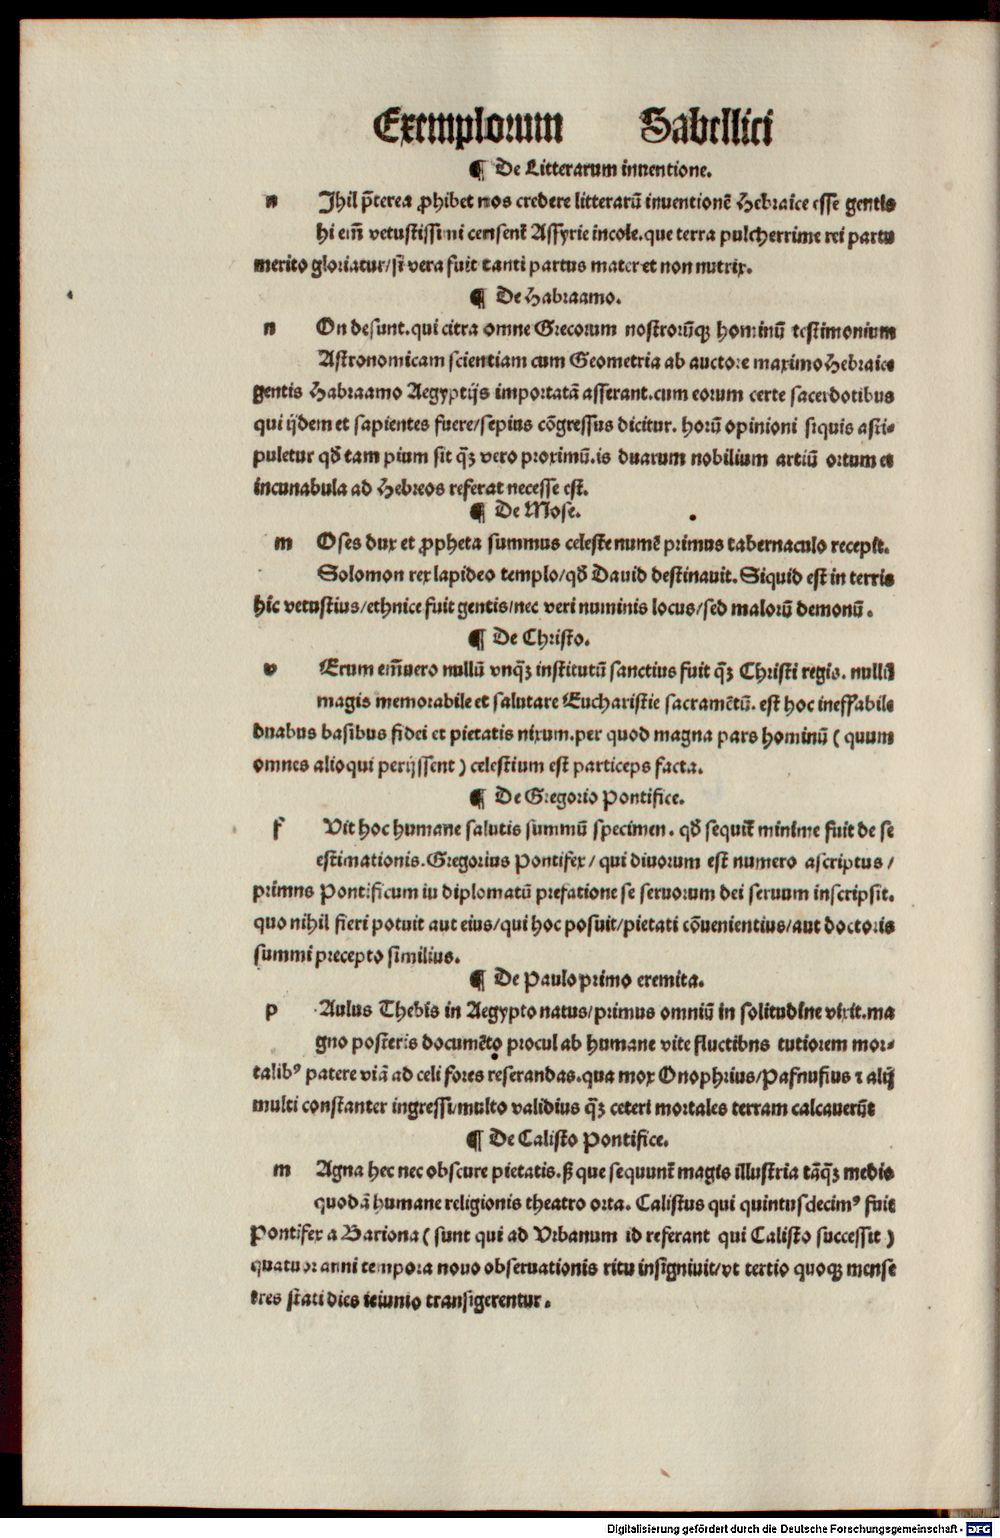 Exemplorum Sabellici
¶ De Litterarum inuentione.
n Ihil p̃terea ꝓhibet nos credere litterarũ inuentionẽ Hebraice esse gentis
hi em̃ vetustissimi censent̃ Assyrie incole.que terra pulcherrime rei partu
merito gloriatur/si vera fuit tanti partus mater et non nutrix.
¶ De Habraamo.
n On desunt.qui citra omne Grecorum nostrorũqꝫ hominũ testimonium
Astronomicam scientiam cum Geometria ab auctore maximo Hebraice
gentis Habraamo Aegyptijs importatã asserant.cum eorum certe sacerdotibus
qui ijdem et sapientes fuere/sepius cõgressus dicitur. horũ opinioni siquis asti⸗
puletur qð tam pium sit qꝫ̃ vero proximũ.is duarum nobilium artiũ ortum et
incunabula ad Hebreos referat necesse est.
¶ De Mose.
m Oses dux et ꝓpheta summus celeste numẽ primus tabernaculo recepit.
Solomon rex lapideo templo/qð Dauid destinauit. Siquid est in terris
hic vetustius/ethnice fuit gentis/nec veri numinis locus/sed malorũ demonũ.
¶ De Christo.
v Erum em̃uero nullũ vnqꝫ̃ institutũ sanctius fuit qꝫ̃ Christi regis. nullũ
magis memorabile et salutare Eucharistie sacramẽtũ. est hoc ineffabile
duabus basibus fidei et pietatis nixum.per quod magna pars hominũ ( quum
omnes alioqui perijssent ) celestium est particeps facta.
¶ De Gregorio Pontifice.
f Vit hoc humane salutis summũ specimen. qð sequit̃ minime fuit de se
estimationis. Gregorius Pontifex/ qui diuorum est numero ascriptus /
primns Pontificum iu diplomatũ prefatione se seruorum dei seruum inscripsit.
quo nihil fieri potuit aut eius/qui hoc posuit/pietati cõuenientius/aut doctoris
summi precepto similius.
¶ De Paulo primo eremita.
p Aulus Thebis in Aegypto natus/primus omniũ in solitudine vixit.ma
gno posteris documẽto procul ab humane vite fluctibns tutiorem mor⸗
talibꝰ patere viã ad celi fores reserandas.qua mox Onophrius/Pafnufius ⁊ alij
multi constanter ingressi/multo validius qꝫ̃ ceteri mortales terram calcauerũt
¶ De Calisto Pontifice.
m Agna hec nec obscure pietatis.ꝭ que sequunt̃ magis illustria tãqꝫ̃ medio
quodã humane religionis theatro orta. Calistus qui quintusdecimꝰ fuit
Pontifex a Bariona ( sunt qui ad Vrbanum id referant qui Calisto successit )
quatuor anni tempora nouo obseruationis ritu insigniuit/vt tertio quoqꝫ mense
tres stati dies ieiunio transigerentur.
Digitalisierung gefördert durch die Deutsche Forschungsgemeinschaft - DFG